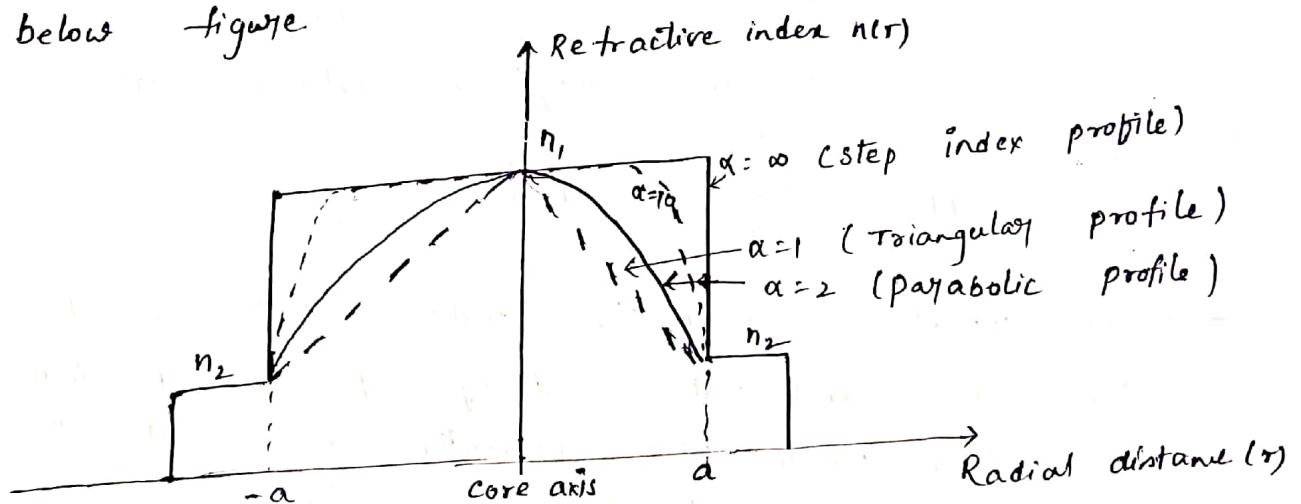 below figure
Refractive index n(r)
n₁
α = ∞ (step index profile)
α=10
α=1 (Triangular profile)
α=2 (parabolic profile)
n₂
n₂
Radial distance (r)
-a
core axis
a